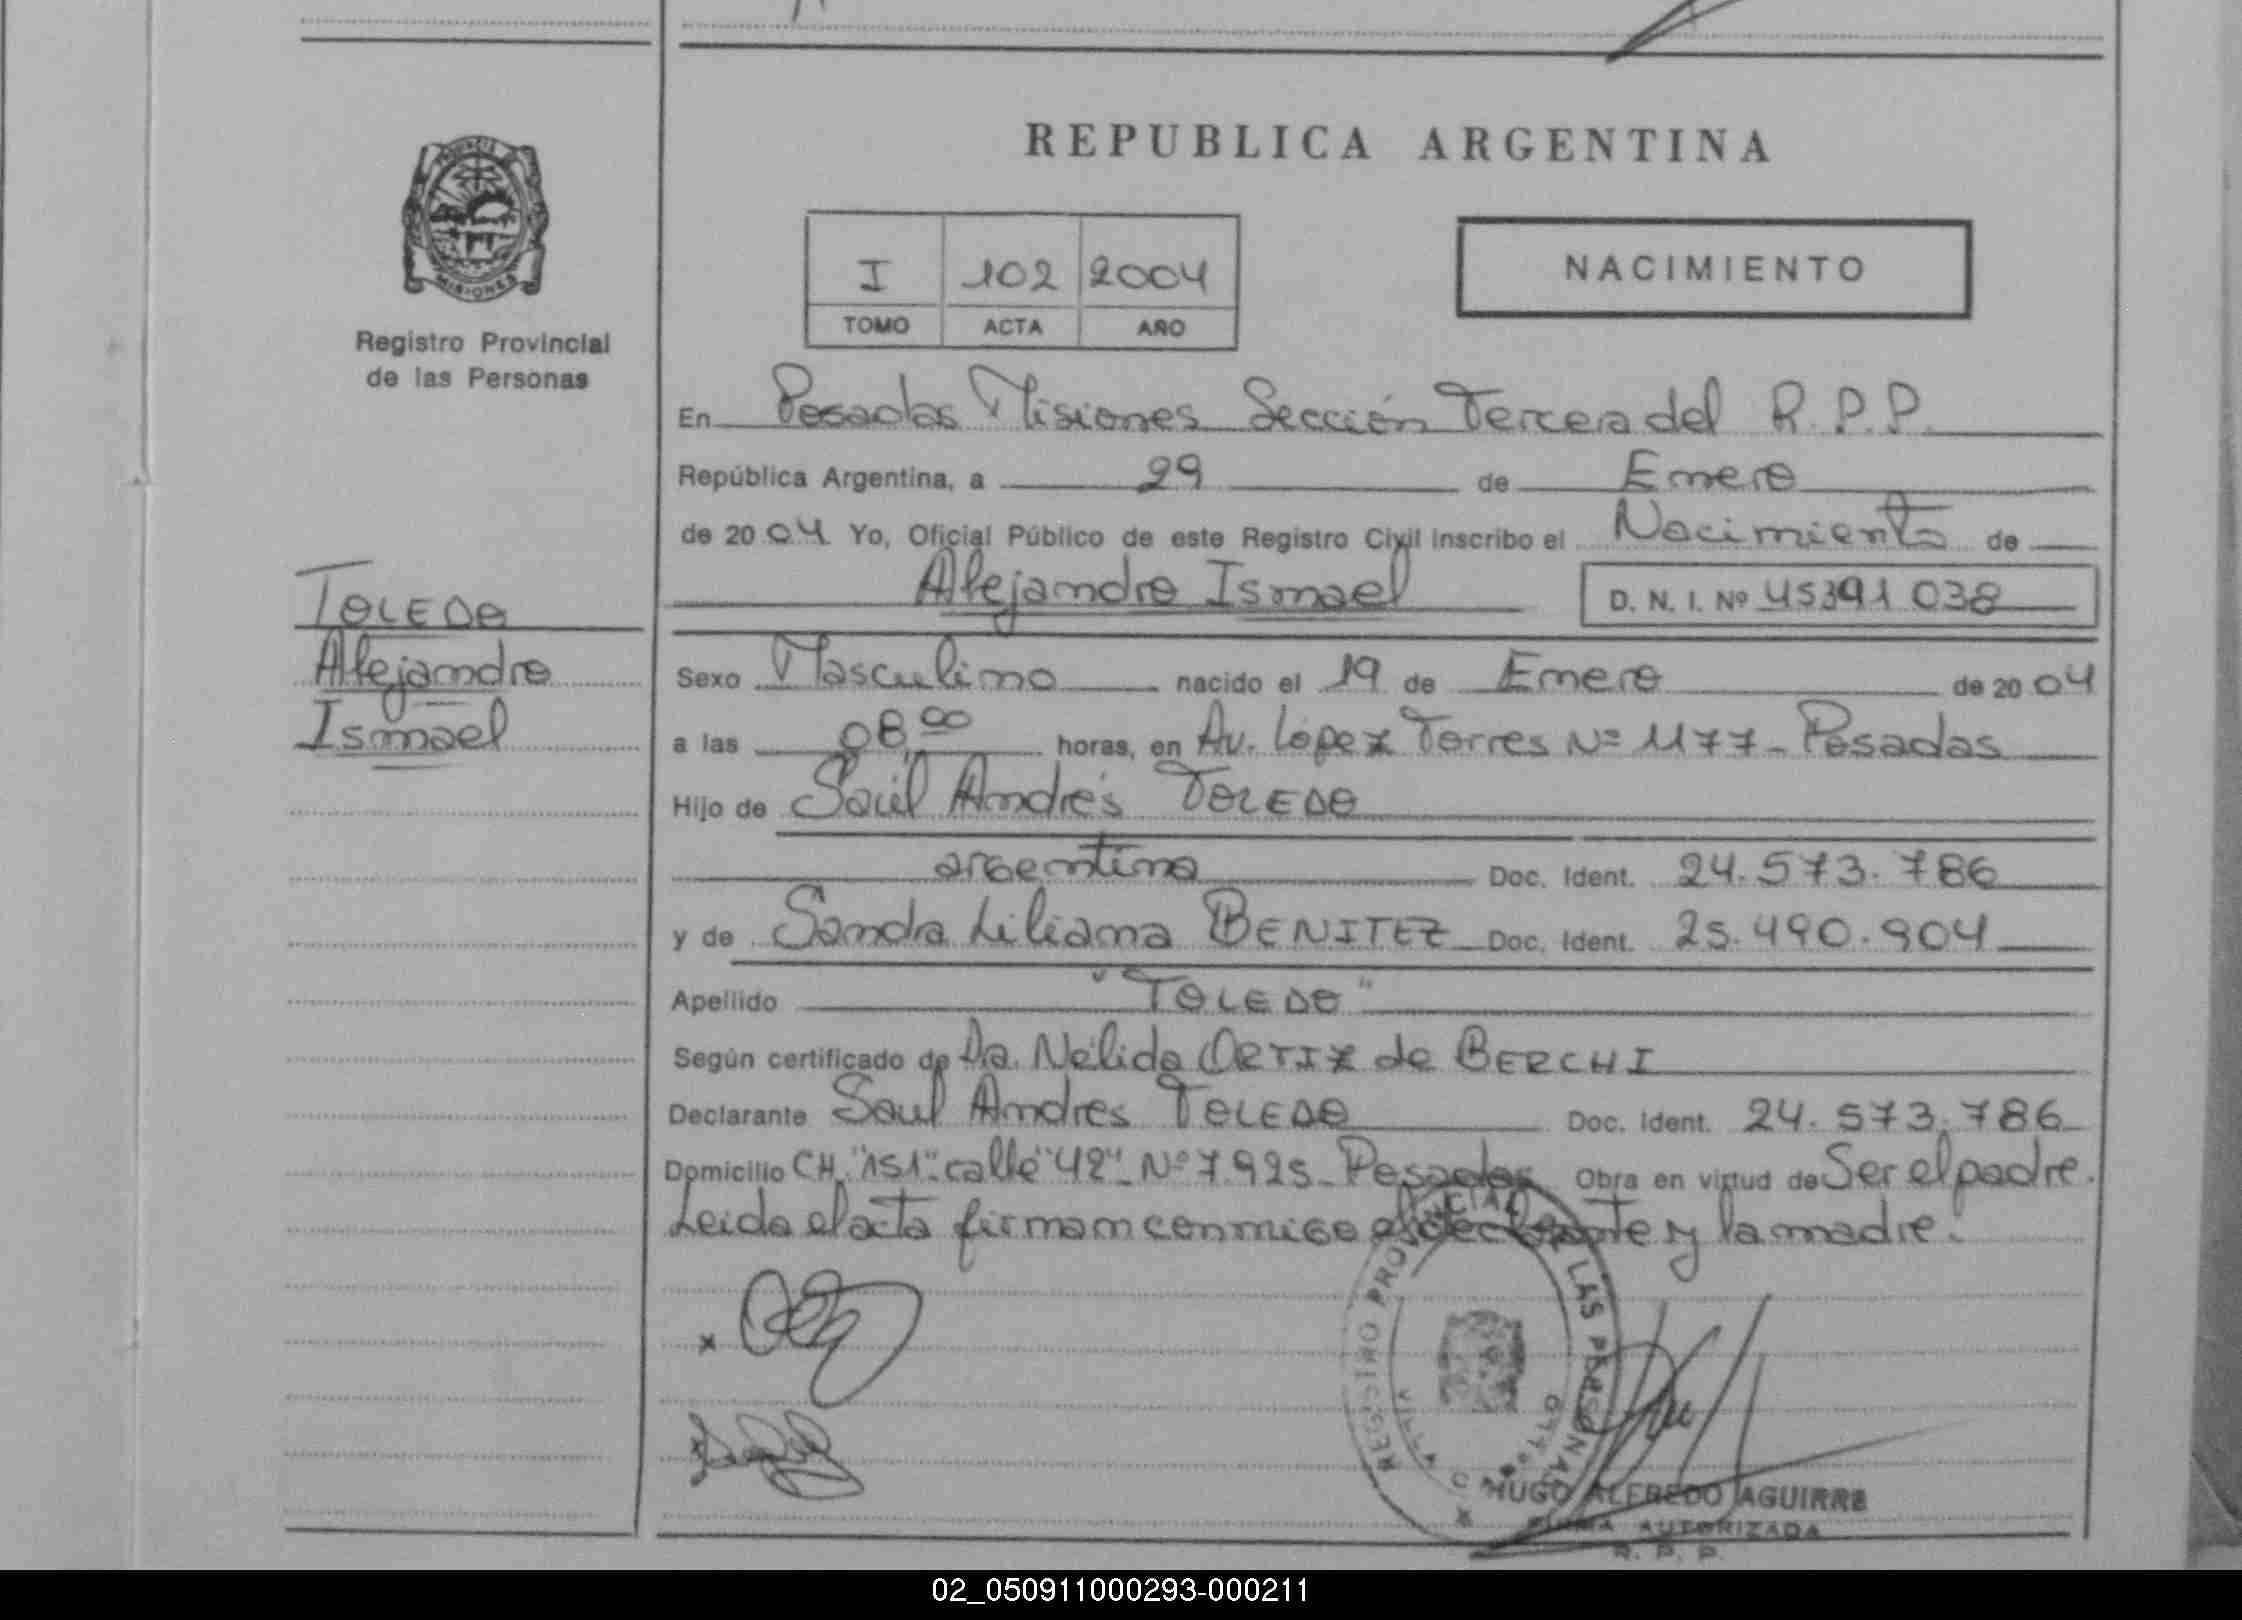 REPUBLICA ARGENTINA
PROVINCIA
MISIONES
Registro Provincial
de las Personas
I 102 2004
TOMO ACTA AÑO
NACIMIENTO
En Posadas Misiones Sección Tercera del R.P.P.
República Argentina, a 29 de Enero
de 2004 Yo, Oficial Público de este Registro Civil inscribo el Nacimiento de
Alejandro Ismael D. N. I. Nº 45391 038
TOLEDO
Alejandro
Ismael
Sexo Masculino nacido el 19 de Enero de 2004
a las 08,00 horas, en Av. Lopez Torres Nº 1177- Posadas
Hijo de Saúl Andrés TOLEDO
argentino Doc. Ident. 24.573.786
y de Sandra Liliana BENITEZ Doc. Ident. 25.490.904
Apellido "TOLEDO"
Según certificado de Da. Nélida ORTIZ de BERCHI
Declarante Saul Andres TOLEDO Doc. Ident. 24.573.786
Domicilio CH. "151"- calle "42"- Nº 7.925- Posadas Obra en virtud de Ser el padre.
Leida el acta firman conmigo el declarante y la madre.
REGISTRO PROVINCIAL DE LAS PERSONAS
HUGO ALFREDO AGUIRRE
FIRMA AUTORIZADA
R. P. P.
02_050911000293-000211